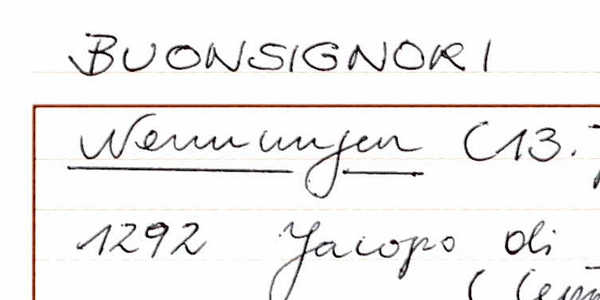 BUONSIGNORI
Nennungen (13.
1292 Jacopo di